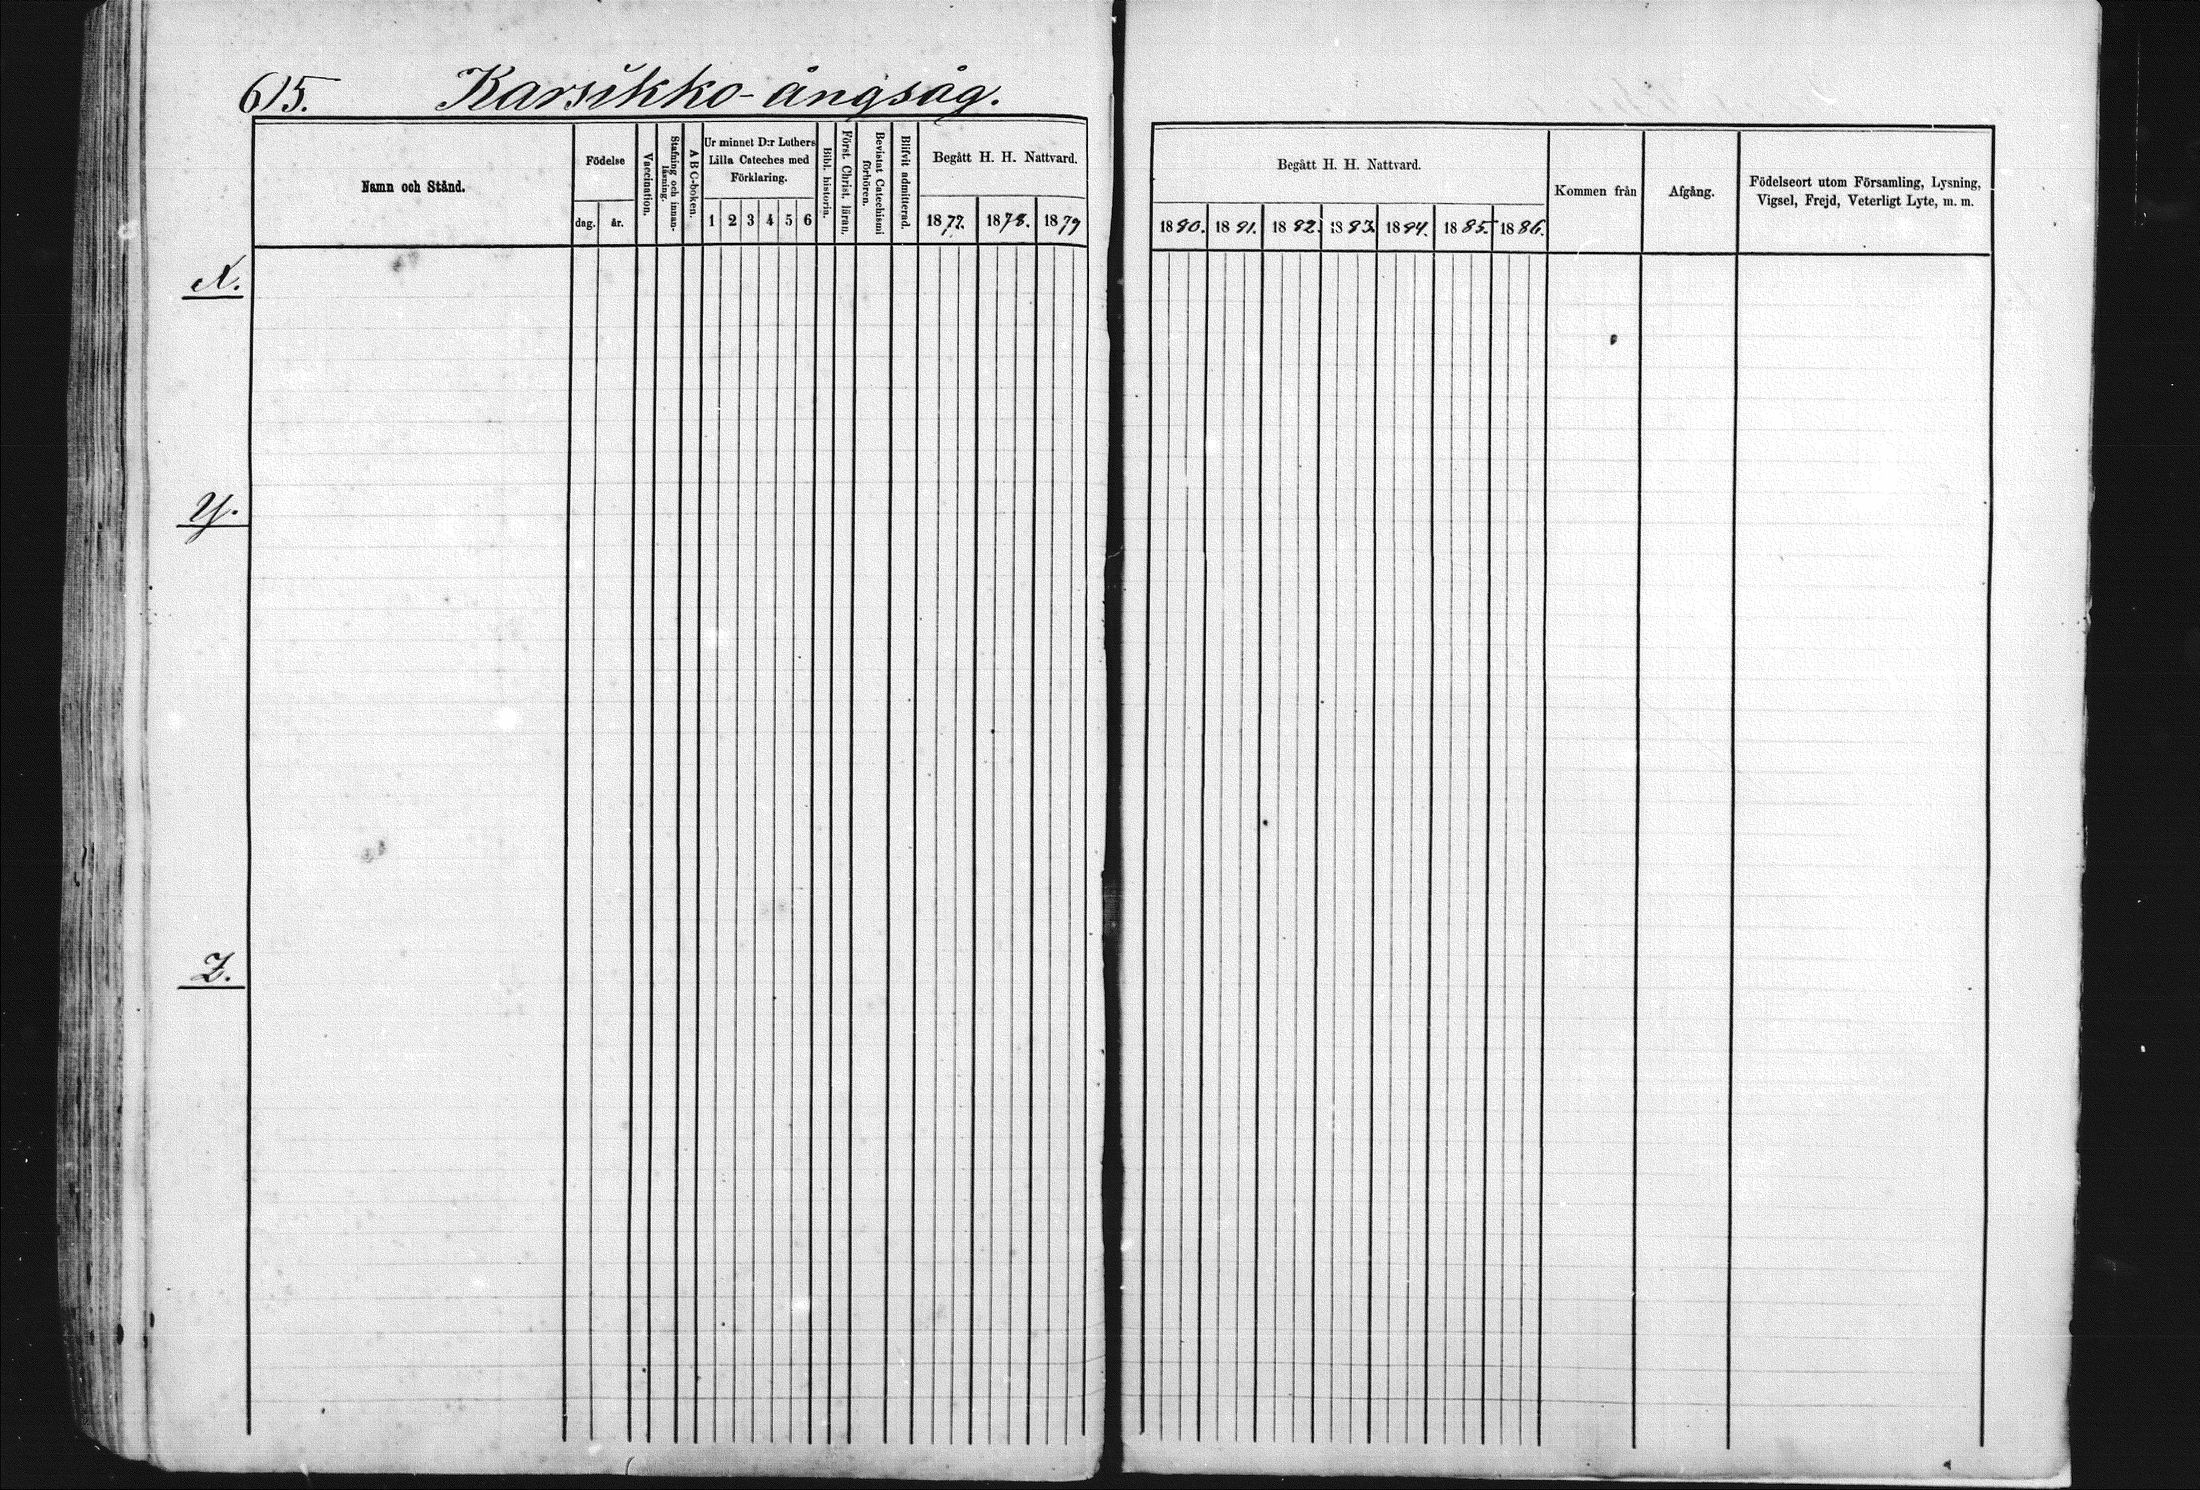 615. Karsikko-ångsåg.
Namn och Stånd.
Födelse
dag. år.
Vaccination.
Stafning och innan-
läsning.
A B C-boken.
Ur minnet D:r Luthers
Lilla Cateches med
Förklaring.
1 2 3 4 5 6
Bibl. historia.
Först. Christ. läran.
Bevistat Catechismi
förhören.
Blifvit admitterad.
Begått H. H. Nattvard.
1877. 1878. 1879
Begått H. H. Nattvard.
1880. 1881. 1882. 1883. 1884. 1885. 1886.
Kommen från
Afgång.
Födelseort utom Församling, Lysning,
Vigsel, Frejd, Veterligt Lyte, m. m.
X.
Y.
Z.